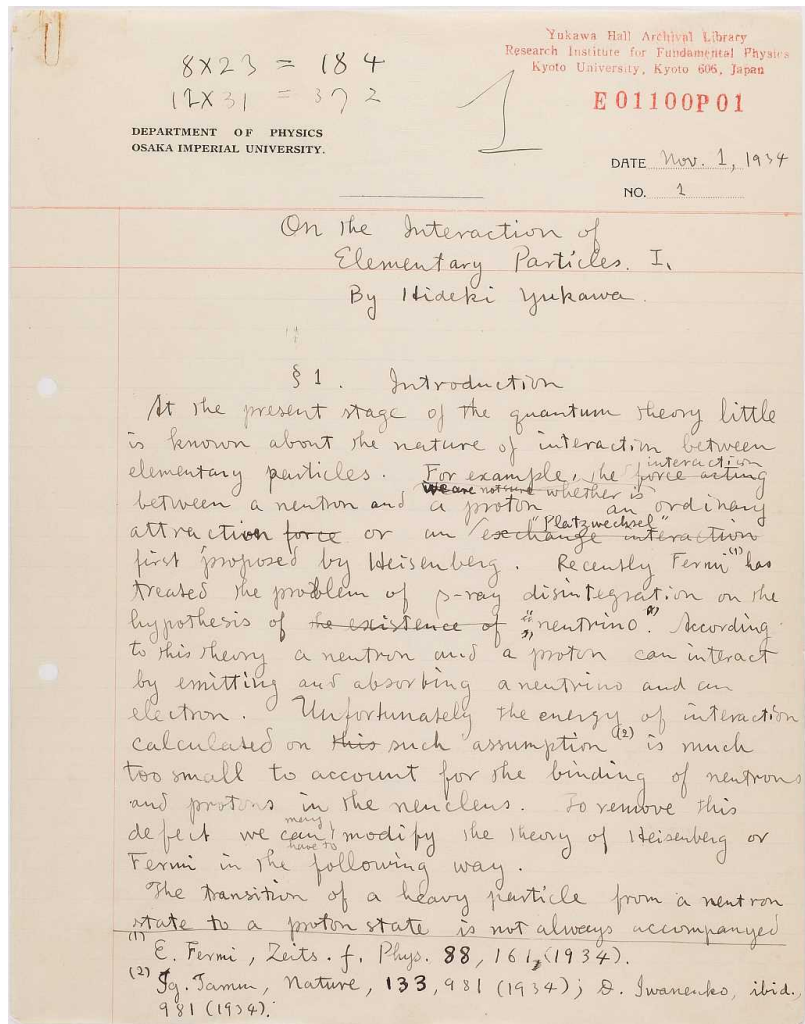 8×23 = 184
12×31 = 372
1
Yukawa Hall Archival Library
Research Institute for Fundamental Physics
Kyoto University, Kyoto 606, Japan
E01100P01
DEPARTMENT OF PHYSICS
OSAKA IMPERIAL UNIVERSITY.
DATE Nov. 1, 1934
NO. 1
On the Interaction of
Elementary Particles. I.
By Hideki Yukawa.
§ 1. Introduction
At the present stage of the quantum theory little
is known about the nature of interaction between
interaction
elementary particles. For example, the force acting
we are not sure whether is
between a neutron and a proton an ordinary
"Platzwechsel"
attraction force or an exchange interaction
first proposed by Heisenberg. Recently Fermi (1) has
treated the problem of β-ray disintegration on the
hypothesis of the existence of "neutrino". According
to this theory a neutron and a proton can interact
by emitting and absorbing a neutrino and an
electron. Unfortunately the energy of interaction
calculated on this such assumption (2) is much
too small to account for the binding of neutrons
and protons in the neucleus. To remove this
may
defect we can modify the theory of Heisenberg or
have to
Fermi in the following way.
The transition of a heavy particle from a neutron
state to a proton state is not always accompanyed
(1) E. Fermi, Zeits. f. Phys. 88, 161, (1934).
(2) Ig. Tamm, Nature, 133, 981 (1934); D. Iwanenko, ibid.,
981 (1934).